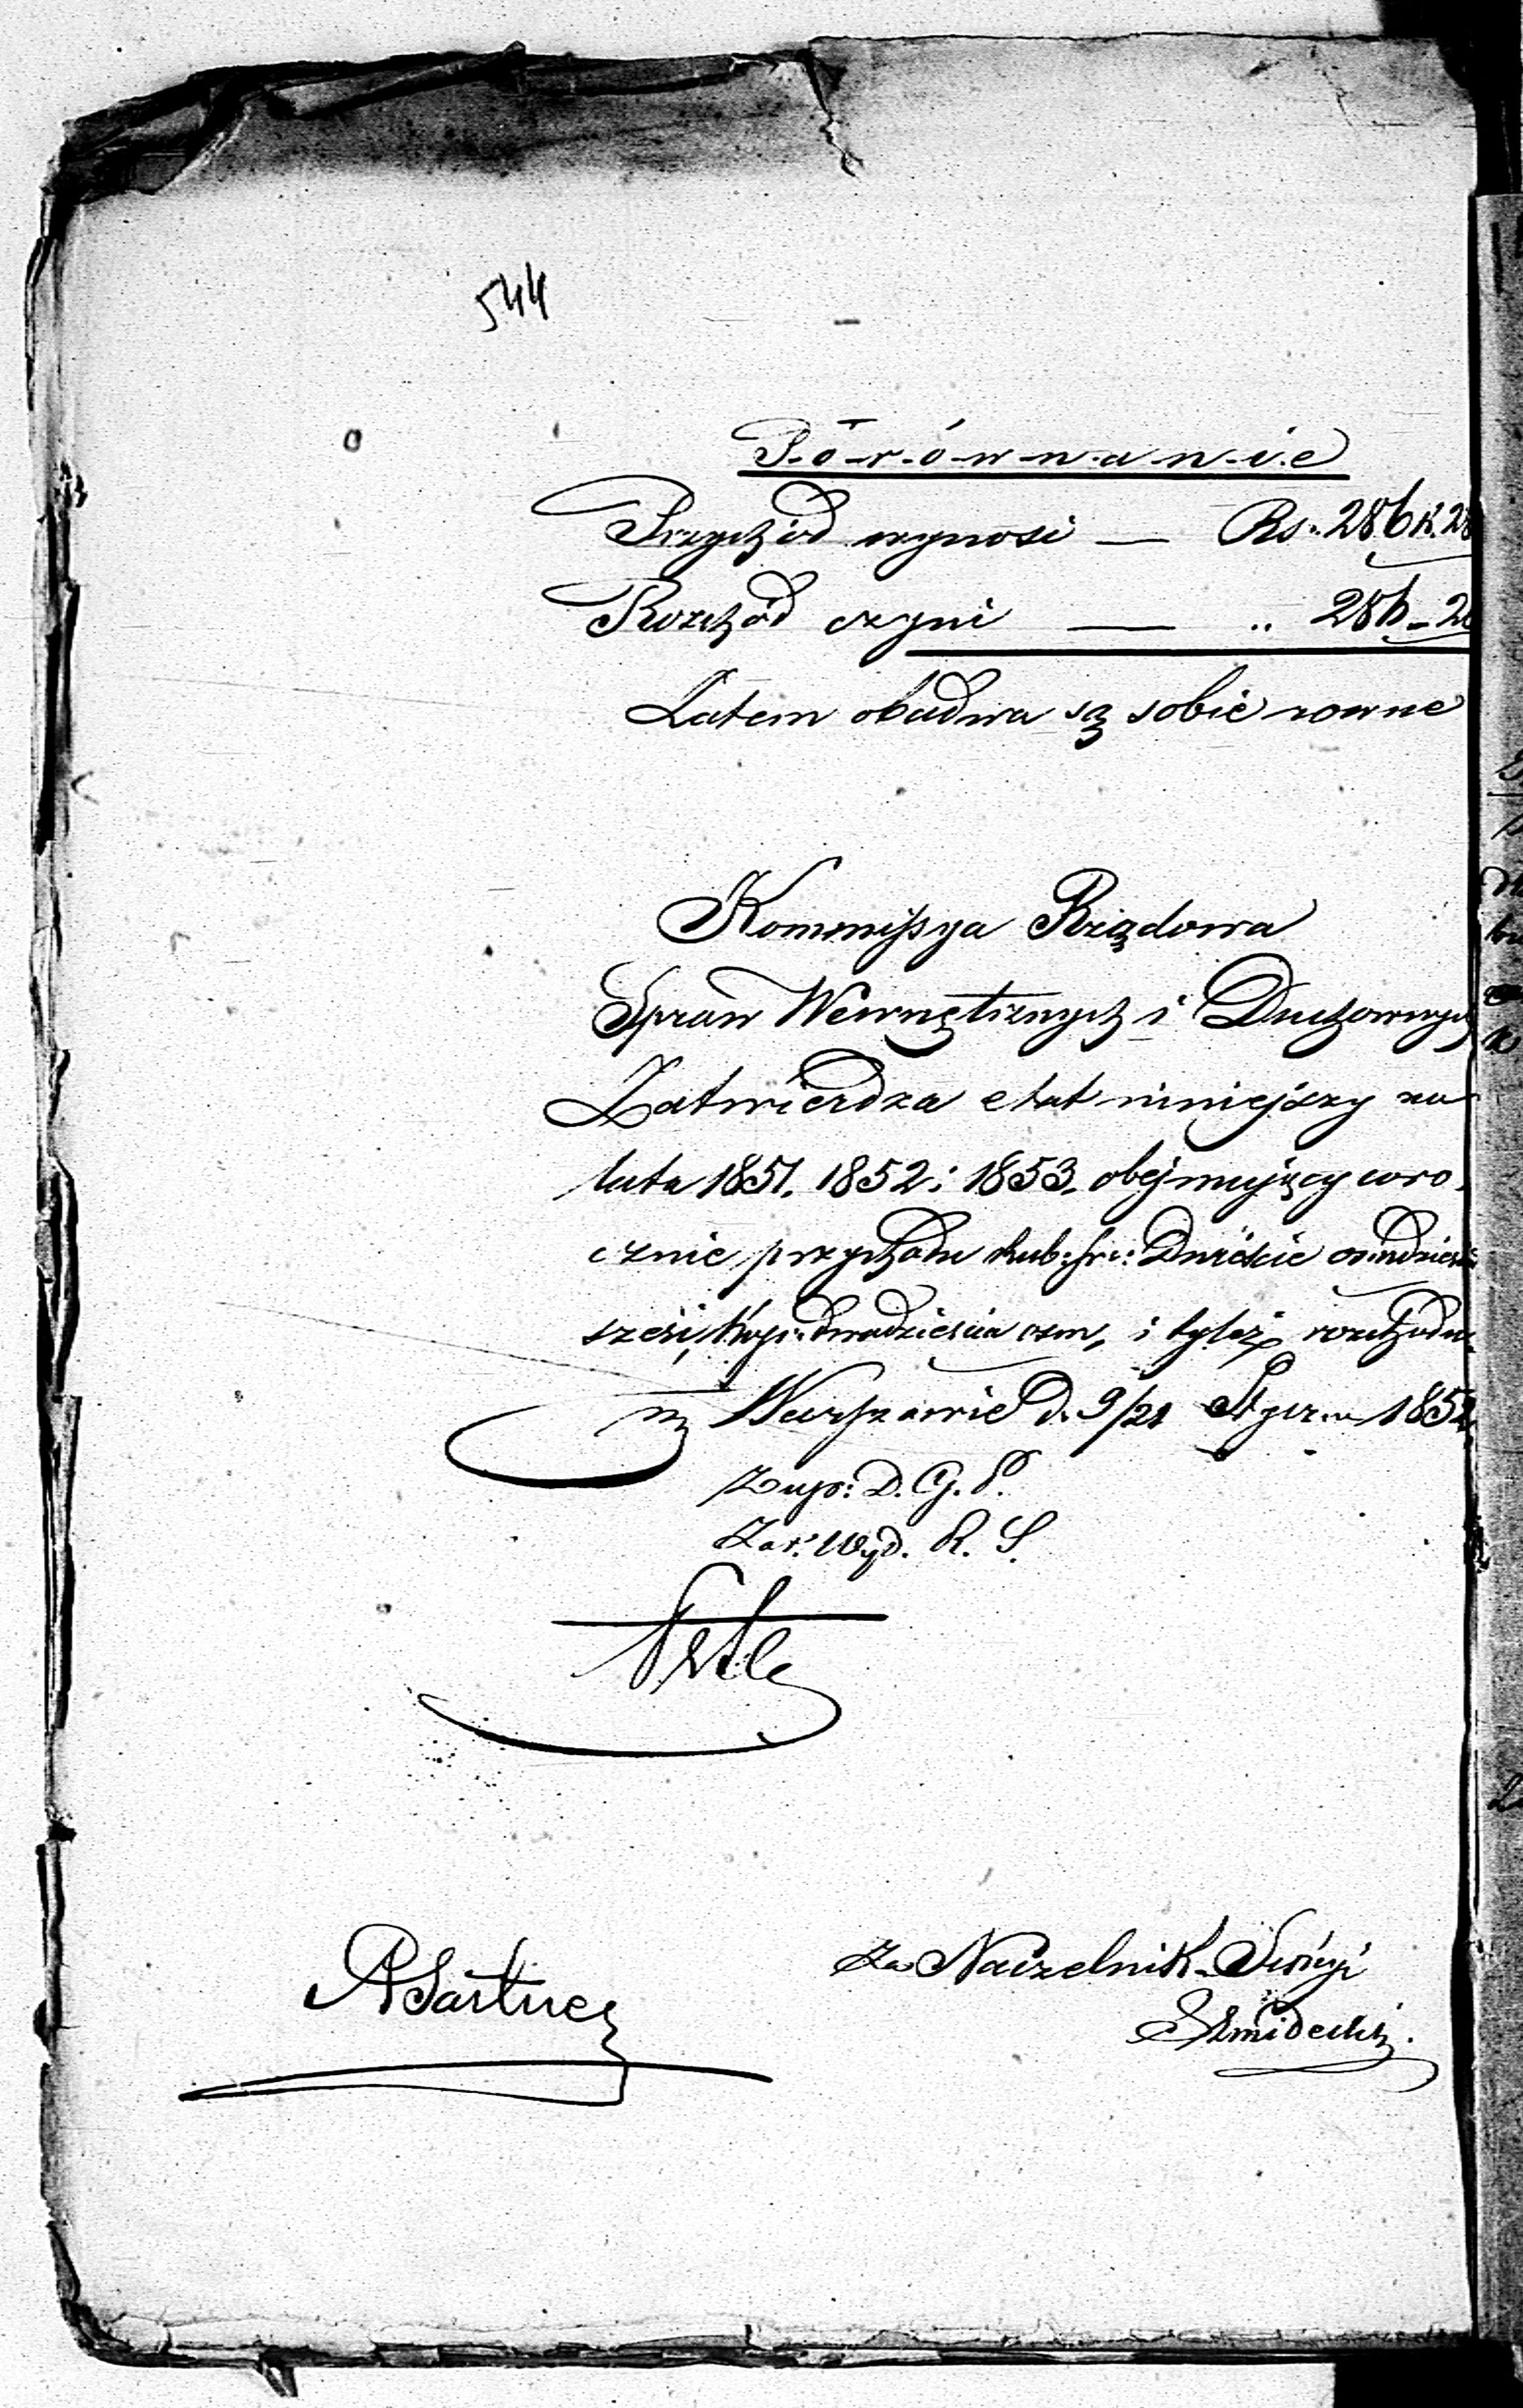 544
P-o-r-ó-w-n-a-n-i-e
Przychód wynosi — Rs. 286 k. 28
Rozchód czyni — „ 286 - 28
Zatem obadwa są sobie rowne
Kommissya Rządowa
Spraw Wewnętrznych i Duchownych
Zatwierdza etat niniejszy na
lata 1851. 1852 i 1853. obejmujący coro-
cznie przychodu Rub: sr: Dwieście osmdziesiąt
sześć, kop: dwadzieścia osm, i tyleż rozchodu.
w Warszawie d. 9/21 Stycznia 1852
Zup: D. G. P.
Zas: Wyd. R. S.
Za Naczelnik Sekcyi